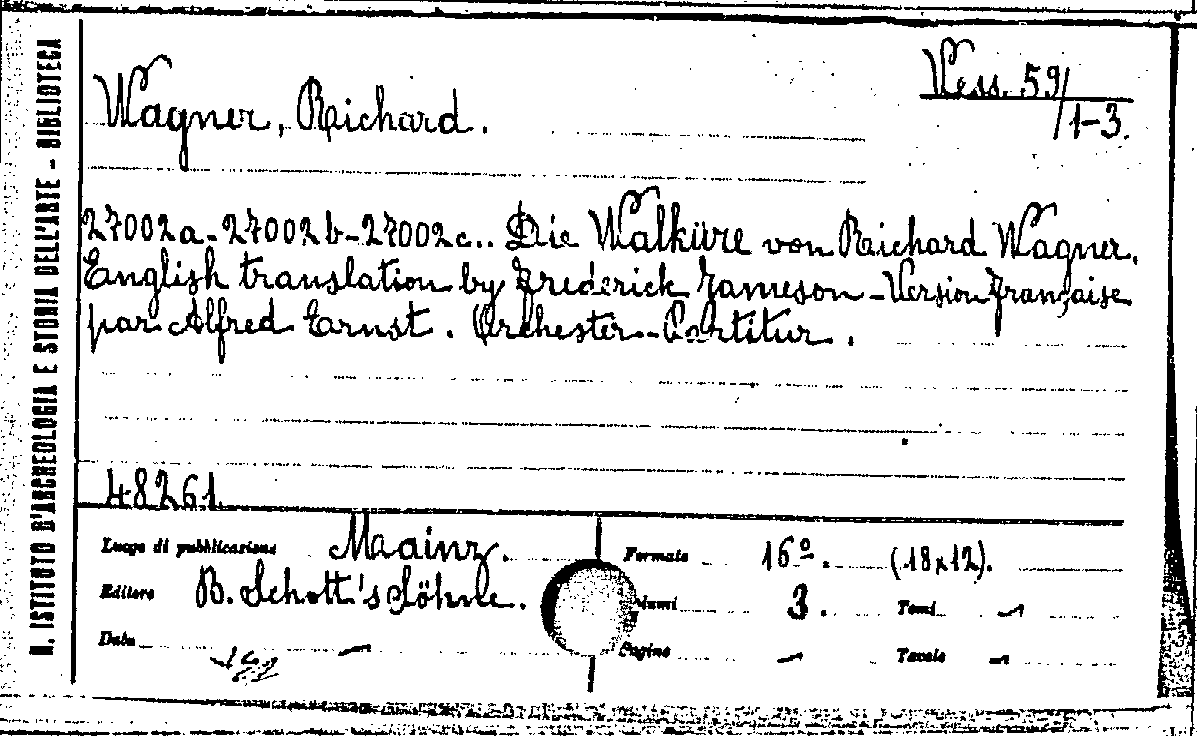 R. ISTITUTO D'ARCHEOLOGIA E STORIA DELL'ARTE - BIBLIOTECA
Vess. 59/
/1-3.
Wagner, Richard.
27002a-27002b-27002c.. Die Walküre von Richard Wagner.
English translation by Frederick Jameson - Version Française
par Alfred Ernst. Orchester-Partitur.
48261.
Luogo di pubblicazione Mainz. Formato 16º. (18x12).
Editore B. Schott's Söhne. Volumi 3. Tomi -
Data - Pagine - Tavole -